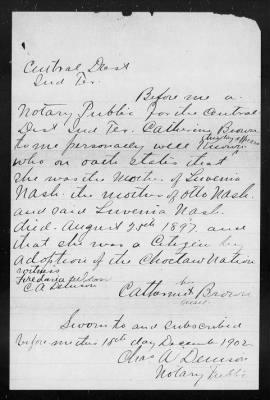 Central Dist
Ind Ter.
Before me a
Notary Public for the Central
Dist Ind Ter. Catherine Brown
to me personally well known
who on oath states that
she was the Mother of Luvenia
Nash. the mother of Otto Nash.
and said Luvenia Nash.
died. August 25th 1897. and
that she was a Citizen by
adoption of the Choctaw Nation
witness
C A Denison
her
Catharine X Brown
mark
Sworn to and subscribed
before me this 18th day December 1902
Chas A Denison
Notary Public